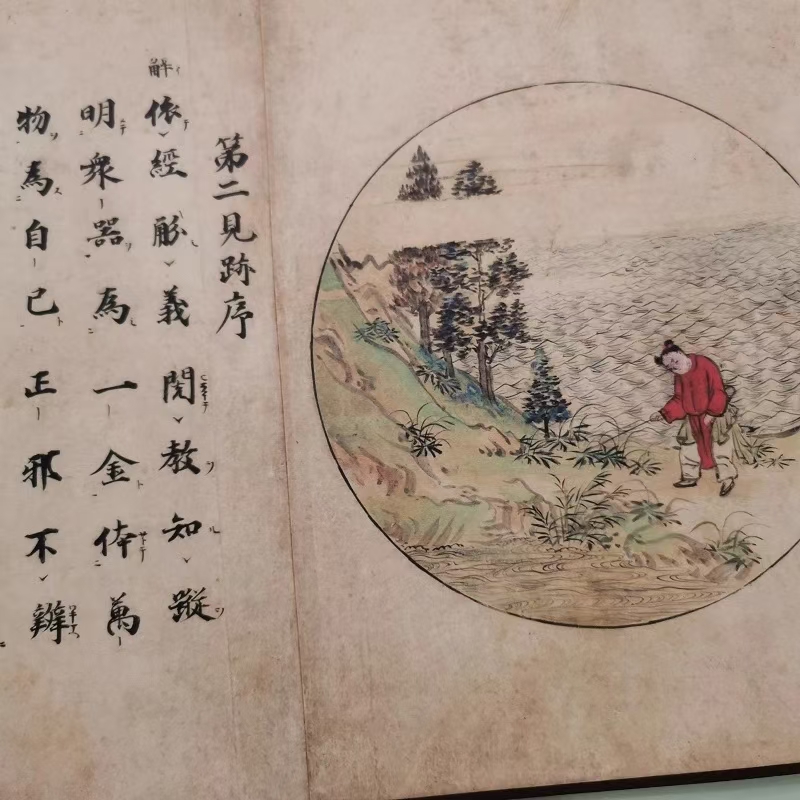 第二見跡序
解イ
依經觧義閱教知蹤
明衆器為一金体萬
物為自己正邪不辨